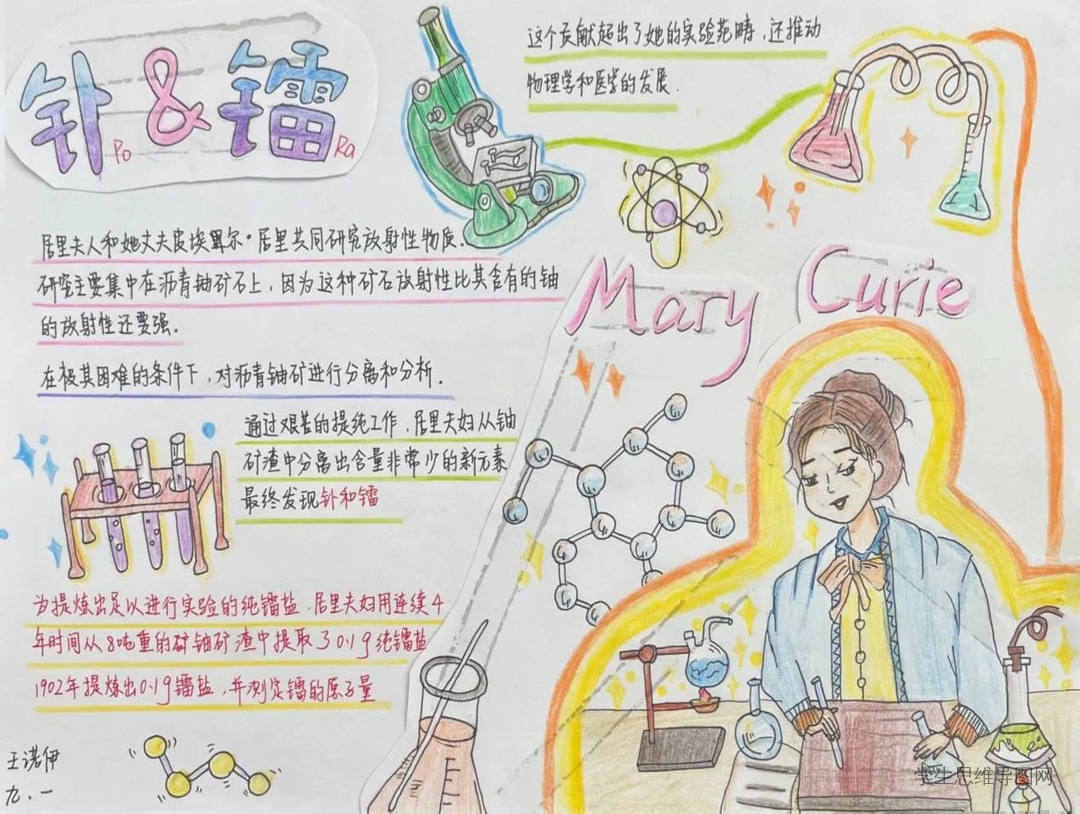 钋 & 镭
Po Ra
这个贡献超出了她的实验范畴,还推动
物理学和医学的发展.
居里夫人和她丈夫皮埃尔·居里共同研究放射性物质.
研究主要集中在沥青铀矿石上,因为这种矿石放射性比其含有的铀
的放射性还要强.
在极其困难的条件下,对沥青铀矿进行分离和分析.
Mary Curie
通过艰苦的提纯工作,居里夫妇从铀
矿渣中分离出含量非常少的新元素
最终发现钋和镭
为提炼出足以进行实验的纯镭盐,居里夫妇用连续4
年时间从8吨重的矿铀矿渣中提取了0.1g纯镭盐
1902年提炼出0.1g镭盐,并测定镭的原子量
王诺伊
九.一
学生思维导图网